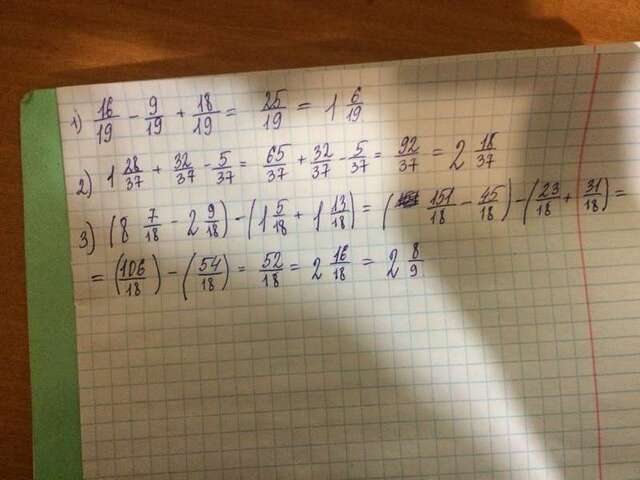 1) 16/19 - 9/19 + 18/19 = 25/19 = 1 6/19
2) 1 28/37 + 32/37 - 5/37 = 65/37 + 32/37 - 5/37 = 92/37 = 2 18/37
3) (8 7/18 - 2 9/18) - (1 5/18 + 1 13/18) = (151/18 - 45/18) - (23/18 + 31/18) =
= (106/18) - (54/18) = 52/18 = 2 16/18 = 2 8/9